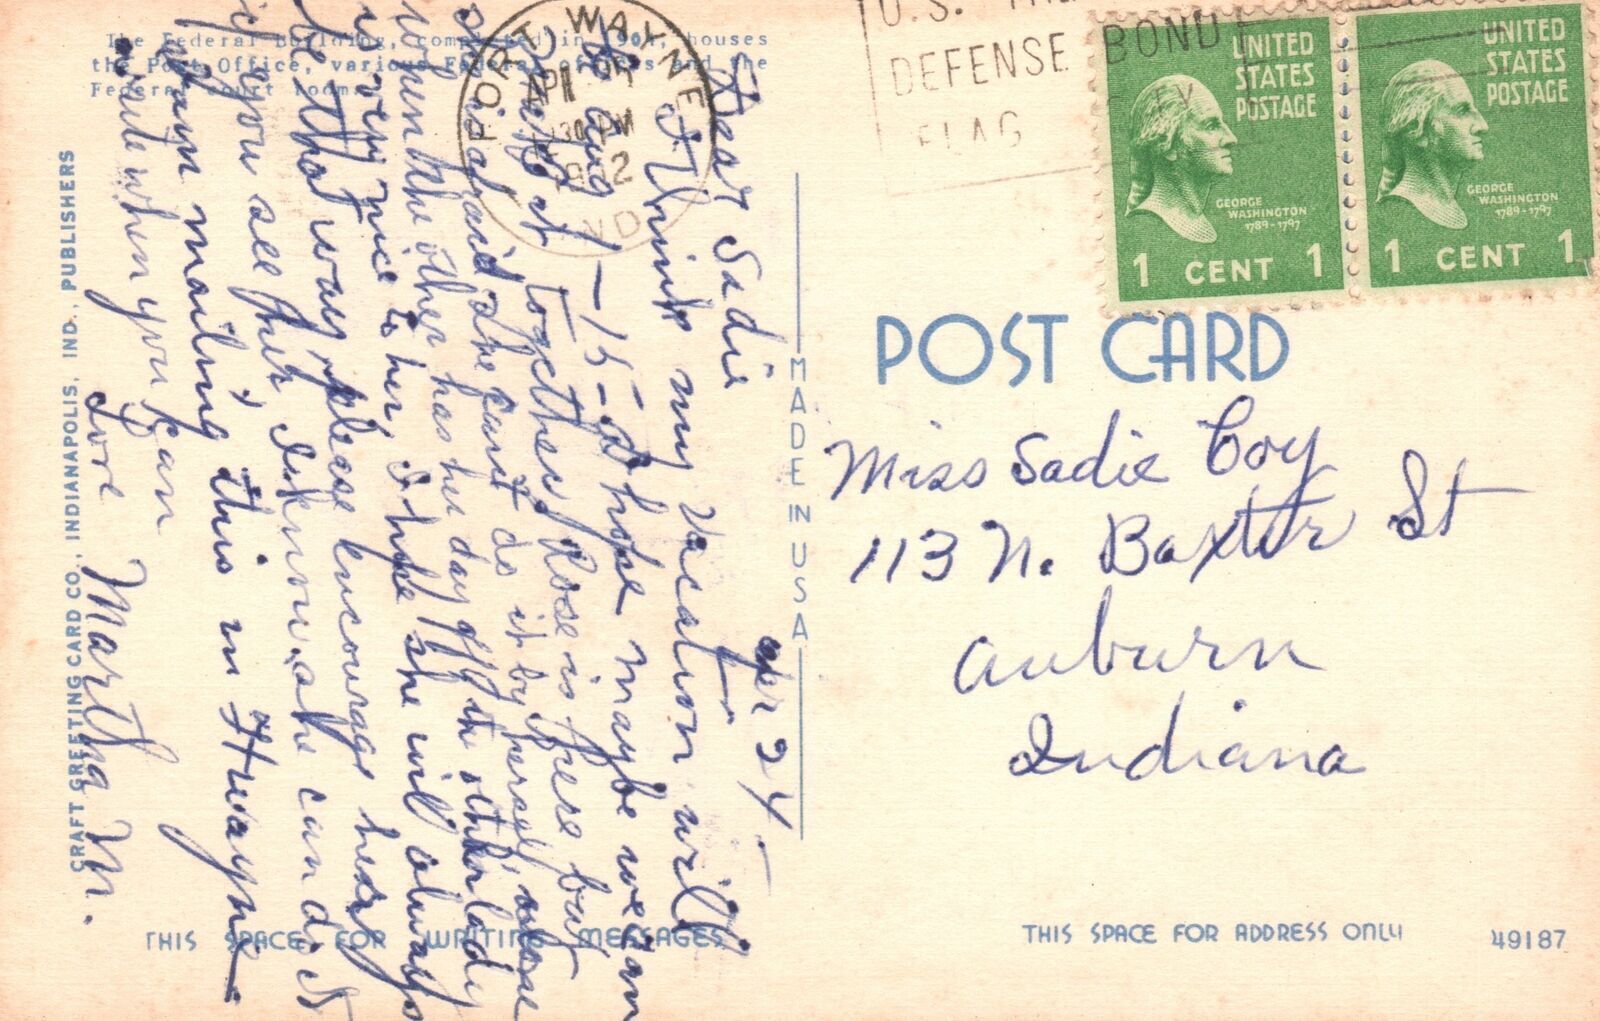 The Federal Building, completed in houses
the Post Office, various Federal offices and the
Federal court rooms
CRAFT GREETING CARD CO., INDIANAPOLIS, IND., PUBLISHERS
FORT WAYNE
30 PM
IND
U.S.
DEFENSE BOND
FLAG
UNITED
STATES
POSTAGE
GEORGE
WASHINGTON
1789-1797
1 CENT 1
UNITED
STATES
POSTAGE
GEORGE
WASHINGTON
1789-1797
1 CENT 1
POST CARD
MADE IN U.S.A.
Apr 24.
Dear Sadie
I think my vacation will
be aug 1-15- I hope maybe we can
get together, Rose is here but
is afraid she cant do it by herself,
when the other has her day off the other lady
is very nice to her I hope she will always
be that way, please encourage her
if you see her, I know she can do it
am mailing this in Ft wayne.
write when you can
Love Martha M.
Miss Sadie Coy
113 N. Baxter St
Auburn
Indiana
THIS SPACE FOR WRITING MESSAGES
THIS SPACE FOR ADDRESS ONLY
49187